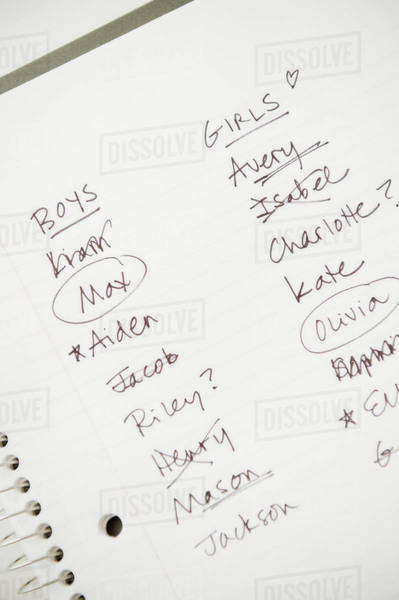 BOYS
Max
*Aiden
Jacob
Riley?
Henry
Mason
Jackson
GIRLS ♡
Avery
Isabel
Charlotte?
Kate
Olivia
DISSOLVE